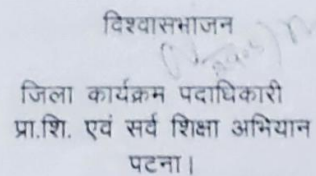 विश्वासभाजन
जिला कार्यक्रम पदाधिकारी
प्रा.शि. एवं सर्व शिक्षा अभियान
पटना।